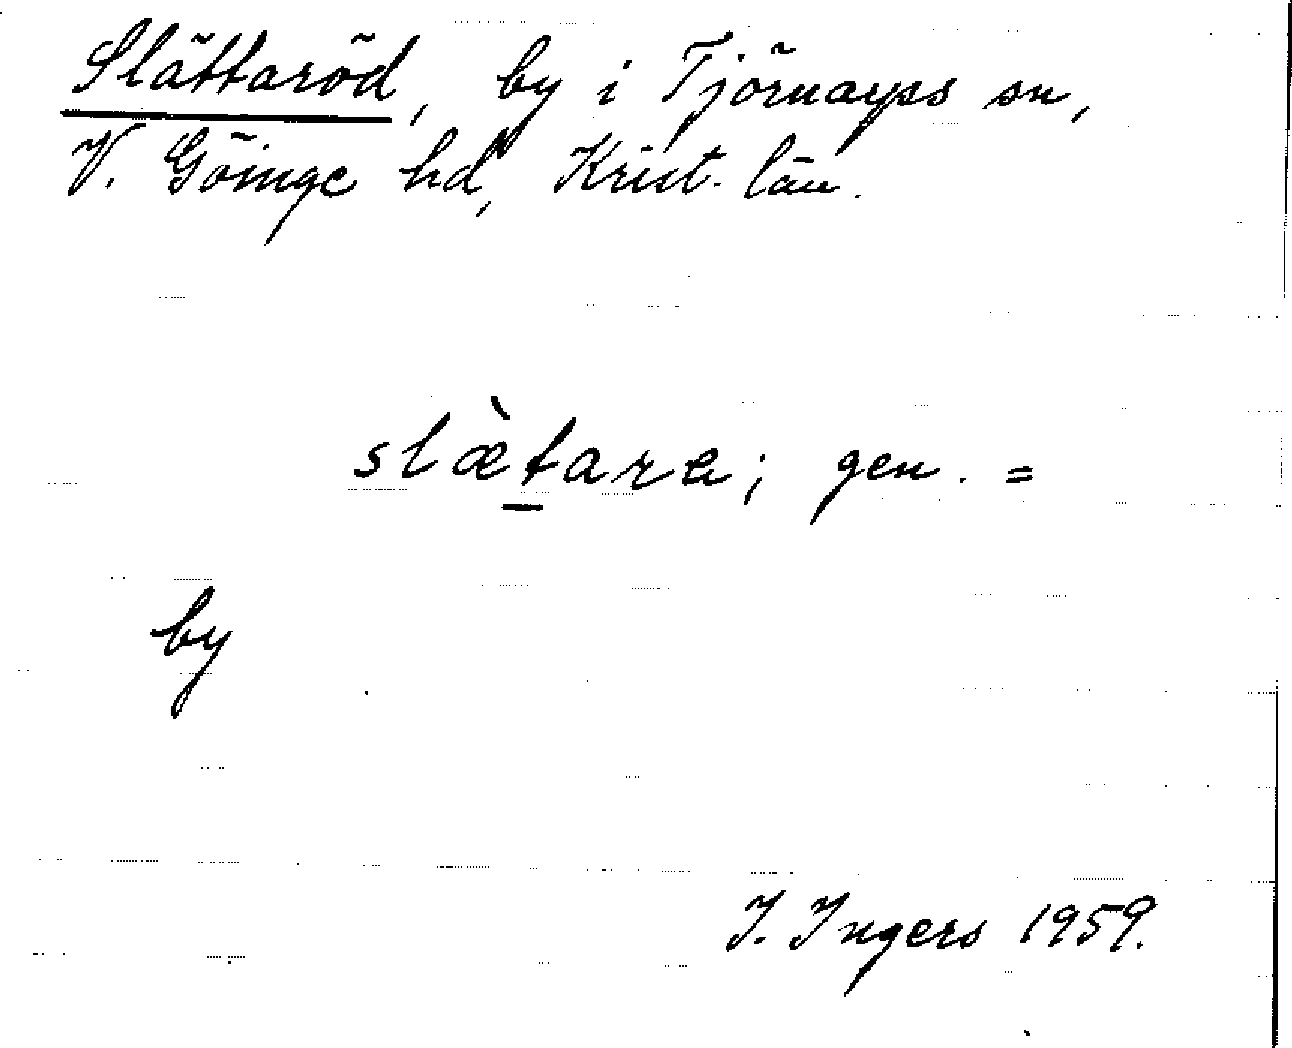 Slättaröd, by i Tjörnarps sn,
V. Göinge hd, Krist. län.
slæ̀t̲ara; gen. =
by
I. Ingers 1959.